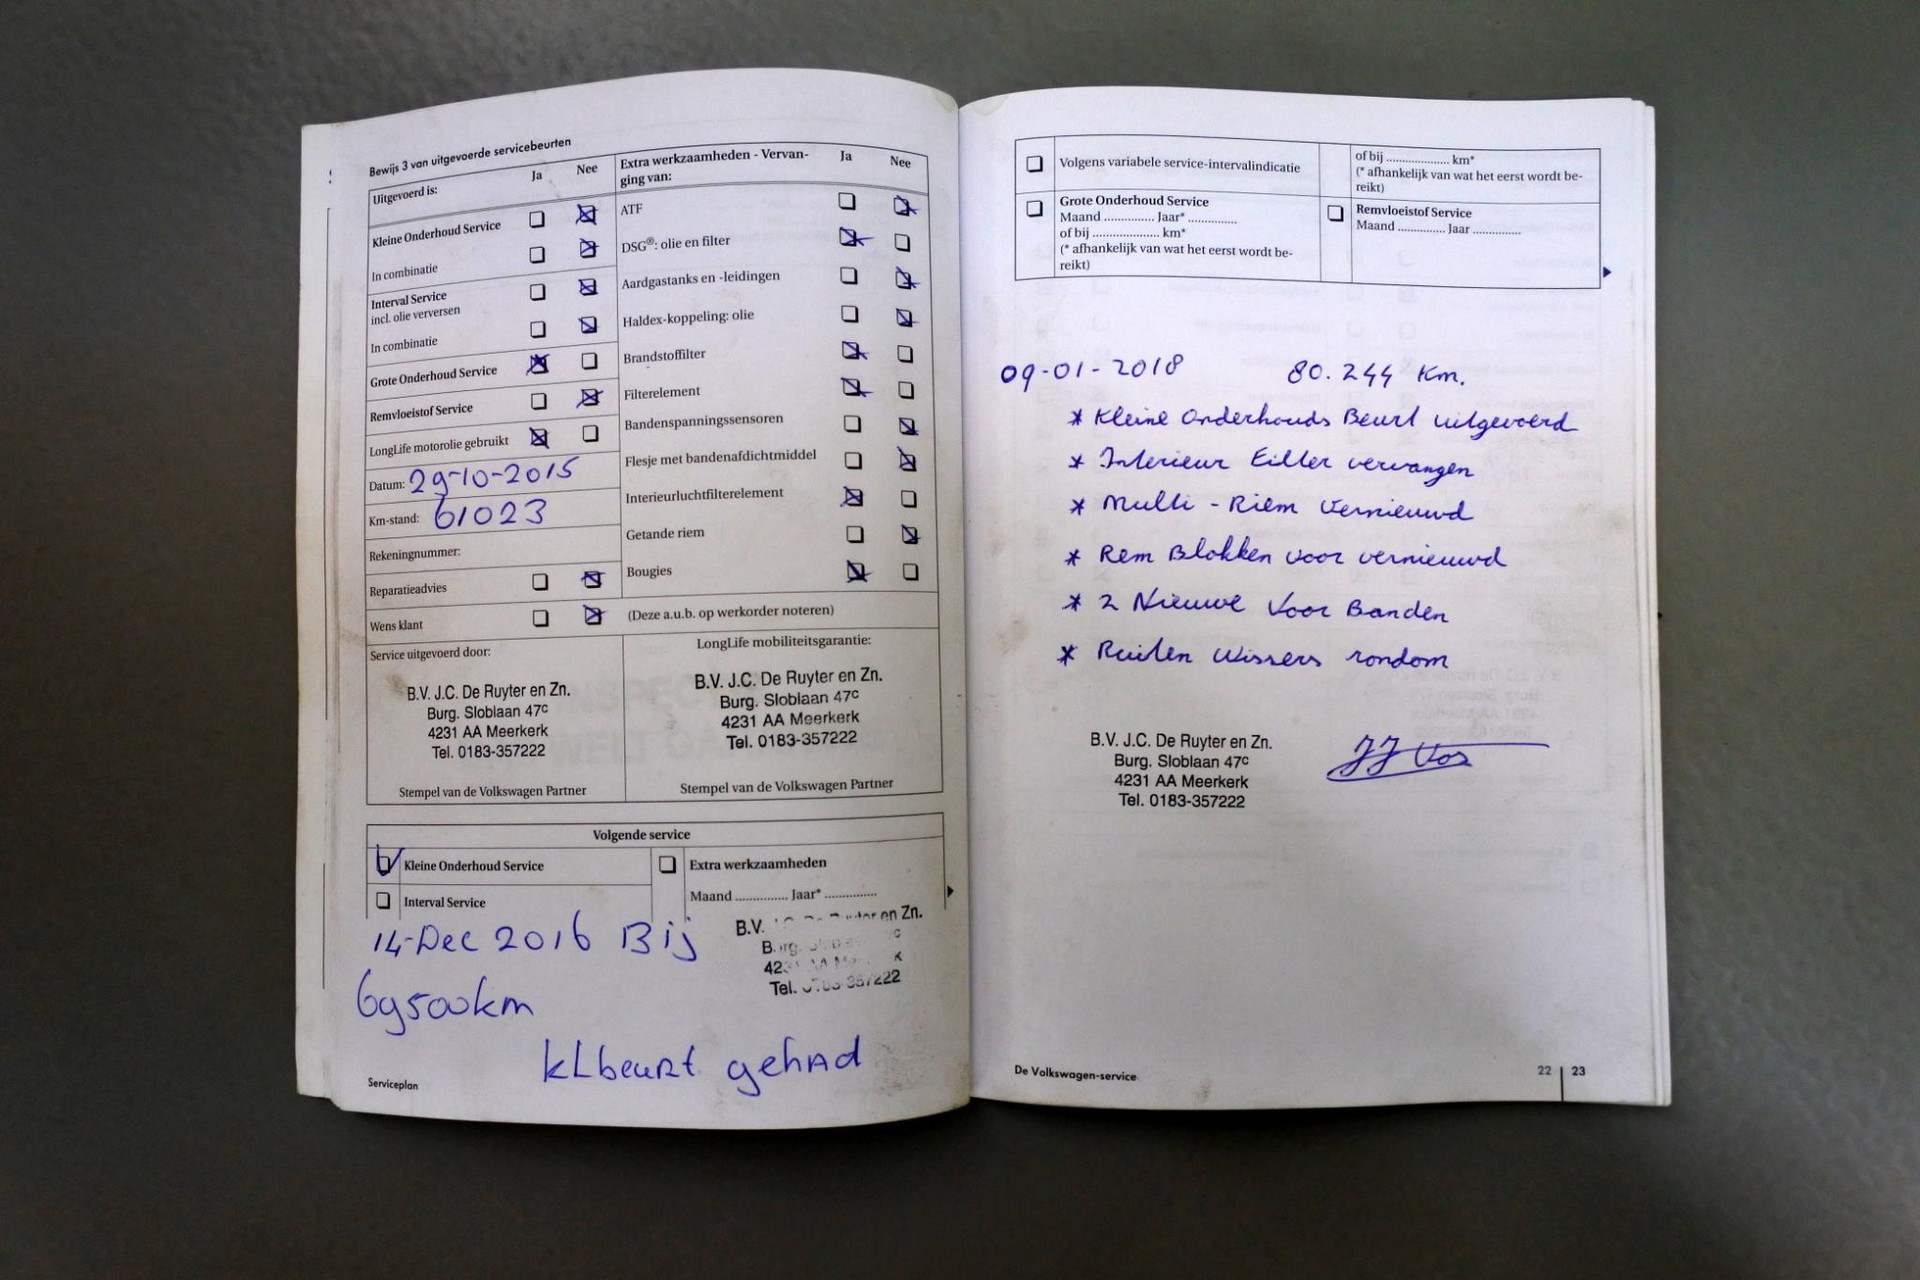 Bewijs 3 van uitgevoerde servicebeurten
Uitgevoerd is: Ja Nee
Kleine Onderhoud Service
In combinatie
Interval Service
incl. olie verversen
In combinatie
Grote Onderhoud Service
Remvloeistof Service
LongLife motorolie gebruikt
Datum: 29-10-2015
Km-stand: 61023
Rekeningnummer:
Reparatieadvies
Wens klant
Extra werkzaamheden - Vervan- Ja Nee
ging van:
ATF
DSG®: olie en filter
Aardgastanks en -leidingen
Haldex-koppeling: olie
Brandstoffilter
Filterelement
Bandenspanningssensoren
Flesje met bandenafdichtmiddel
Interieurluchtfilterelement
Getande riem
Bougies
(Deze a.u.b. op werkorder noteren)
Service uitgevoerd door:
B.V. J.C. De Ruyter en Zn.
Burg. Sloblaan 47c
4231 AA Meerkerk
Tel. 0183-357222
Stempel van de Volkswagen Partner
LongLife mobiliteitsgarantie:
B.V. J.C. De Ruyter en Zn.
Burg. Sloblaan 47c
4231 AA Meerkerk
Tel. 0183-357222
Stempel van de Volkswagen Partner
Volgende service
Kleine Onderhoud Service
Interval Service
Extra werkzaamheden
Maand ............ Jaar* ............
14-Dec 2016 Bij
69500km
klbeurt gehad
B.V. en Zn.
Tel.
Serviceplan
Volgens variabele service-intervalindicatie
of bij .................. km*
(* afhankelijk van wat het eerst wordt be-
reikt)
Grote Onderhoud Service
Maand .............. Jaar* ..............
of bij ................... km*
(* afhankelijk van wat het eerst wordt be-
reikt)
Remvloeistof Service
Maand ............. Jaar .............
09-01-2018 80.244 Km.
* Kleine Onderhouds Beurt uitgevoerd
* Interieur Filter vervangen
* Multi - Riem vernieuwd
* Rem Blokken voor vernieuwd
* 2 Nieuwe Voor Banden
* Ruiten Wissers rondom
B.V. J.C. De Ruyter en Zn.
Burg. Sloblaan 47c
4231 AA Meerkerk
Tel. 0183-357222
JJ Vos
De Volkswagen-service
22 | 23